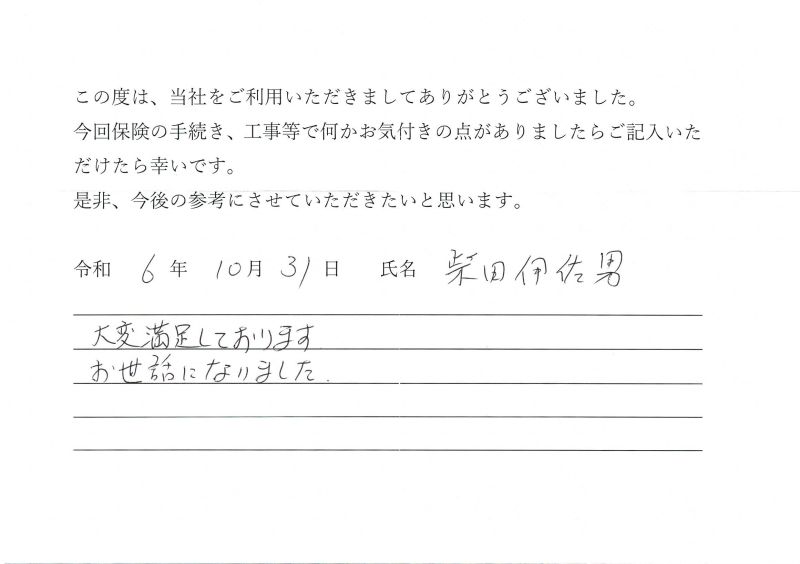 この度は、当社をご利用いただきましてありがとうございました。
今回保険の手続き、工事等で何かお気付きの点がありましたらご記入いた
だけたら幸いです。
是非、今後の参考にさせていただきたいと思います。
令和 6 年 10 月 31 日 氏名 柴田伊佐男
大変満足しております
お世話になりました.